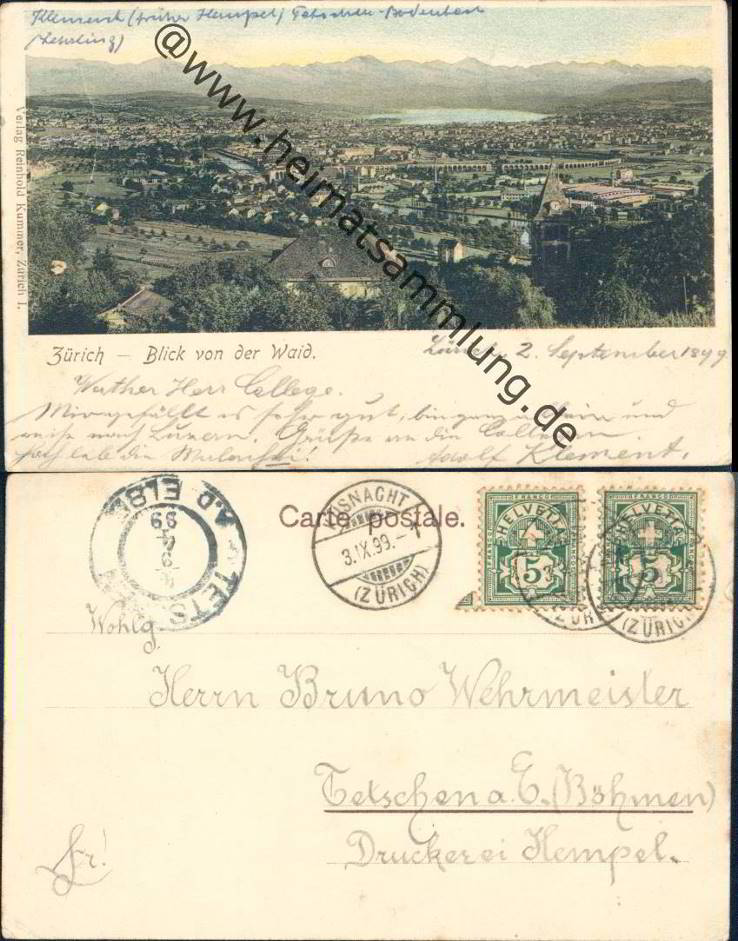 Klement (früher Hempel) Tetschen-Bodenbach
(Lehrling)
@www.heimatsammlung.de
Verlag Reinhold Kummer, Zürich I.
Zürich – Blick von der Waid.
Zürich, 2. September 1899
Werther Herr College.
Mir gefällt es sehr gut, bin ganz allein und
reise nach Luzern. Grüße an die Collegen.
hoch lebe die
Adolf Klement.
Carte postale.
KÜSNACHT
3.IX.99.-7
(ZÜRICH)
TETSCHEN A.D. ELBE
FRANCO
HELVETIA
5
FRANCO
HELVETIA
5
(ZÜRICH)
Wohlg.
Herrn Bruno Wehrmeister
Tetschen a. E. (Böhmen)
fr!
Druckerei Hempel.